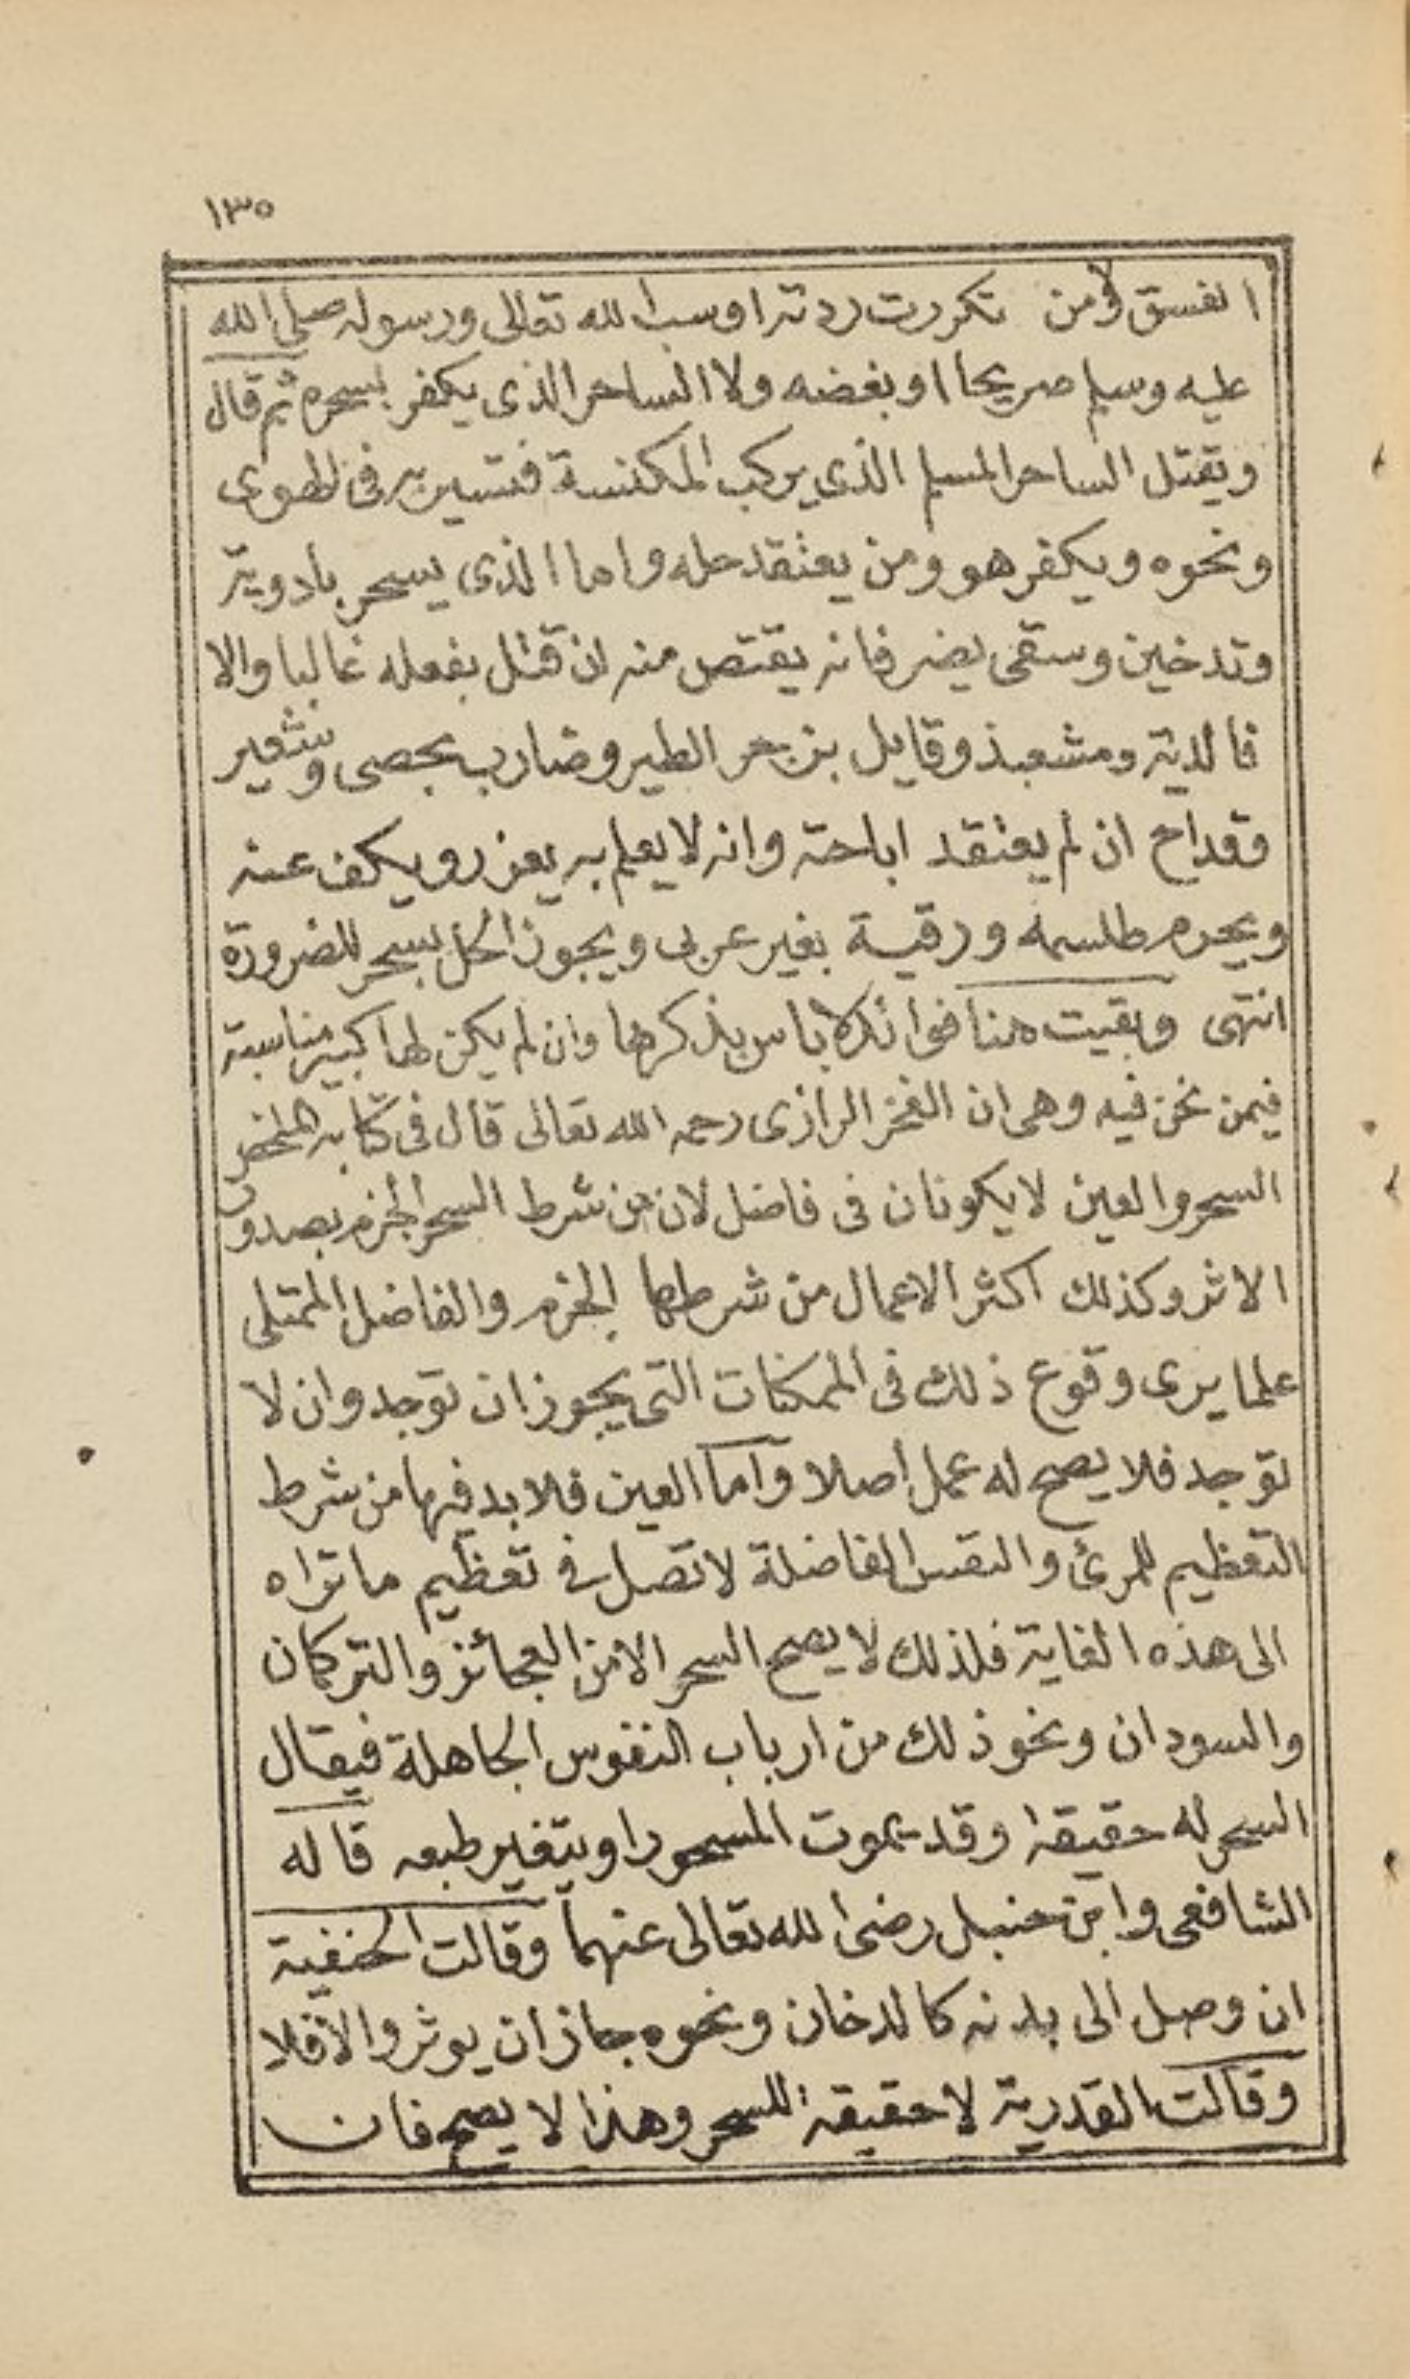 ١٣٥
الفسق ولا من تكررت ردته او سب الله تعالى ورسوله صلى الله
عليه وسلم صريحا او بغضه ولا الساحر الذى يكفر بسحره ثم قال
ويقتل الساحر المسلم الذى يركب المكنسة فتسير به فى الهوى
ونحوه ويكفر هو ومن يعتقد حله واما الذى يسحر بادوية
وتدخين وسقى يضر فانه يقتص منه ان قتل بفعله غالبا والا
فالدية ومشعبذ وقايل بزجر الطير وضارب بحصى وشعير
وقداح ان لم يعتقد اباحته وانه لا يعلم به يعزر ويكف عنه
ويحرم طلسمه ورقية بغير عربى ويجوز الحل بسحر للضرورة
انتهى وبقيت هنا فوائد لا باس بذكرها وان لم يكن لها كبير مناسبة
فيمن نحن فيه وهى ان الفخر الرازى رحمه الله تعالى قال فى كتابه الملخص
السحر والعين لا يكونان فى فاضل لان من شرط السحر الجزم بصدور
الاثر وكذلك اكثر الاعمال من شرطها الجزم والفاضل الممتلى
علما يرى وقوع ذلك فى الممكنات التى يجوز ان توجد وان لا
توجد فلا يصح له عمل اصلا واما العين فلا بد فيها من شرط
التعظيم للمرئ والنفس الفاضلة لا تصل فى تعظيم ما تراه
الى هذه الغاية فلذلك لا يصح السحر الا من العجائز والتركمان
والسودان ونحو ذلك من ارباب النفوس الجاهلة فيقال
السحر له حقيقة وقد يموت المسحور او يتغير طبعه قاله
الشافعى وابن حنبل رضى الله تعالى عنهما وقالت الحنفية
ان وصل الى بدنه كالدخان ونحوه جاز ان يوثر والا فلا
وقالت القدرية لا حقيقة للسحر وهذا لا يصح فان